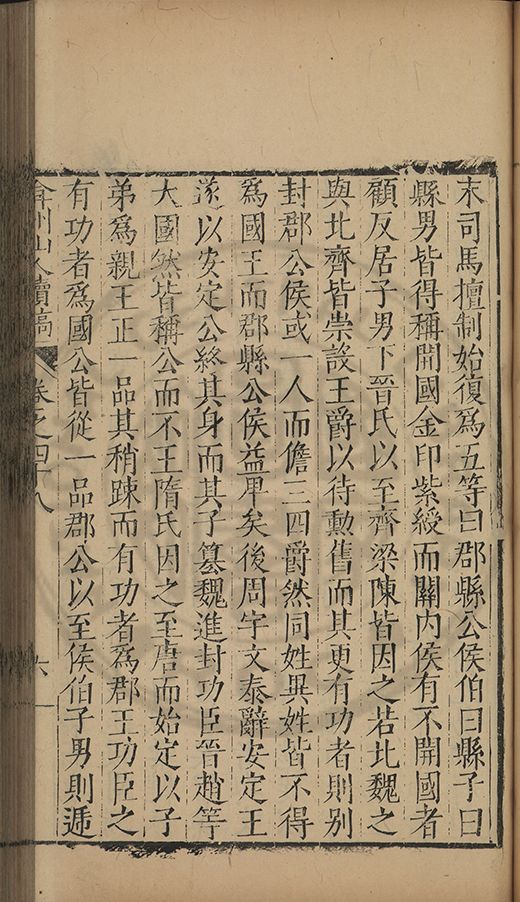 末司馬擅制始復爲五等曰郡縣公侯伯曰縣子曰
縣男皆得稱開國金印紫綬而關内侯有不開國者
顧反居子男下晉氏以至齊梁陳皆因之若北魏之
與北齊皆崇設王爵以待勲舊而其更有功者則别
封郡公侯或一人而儋三四爵然同姓異姓皆不得
爲國王而郡縣公侯益甲矣後周宇文泰辭安定王
遂以安定公終其身而其子簒魏進封功臣晉趙等
大國然皆稱公而不王隋氏因之至唐而始定以子
弟爲親王正一品其稍踈而有功者爲郡王功臣之
有功者爲國公皆從一品郡公以至侯伯子男則遞
弇州山人續稿 卷之四十八 六